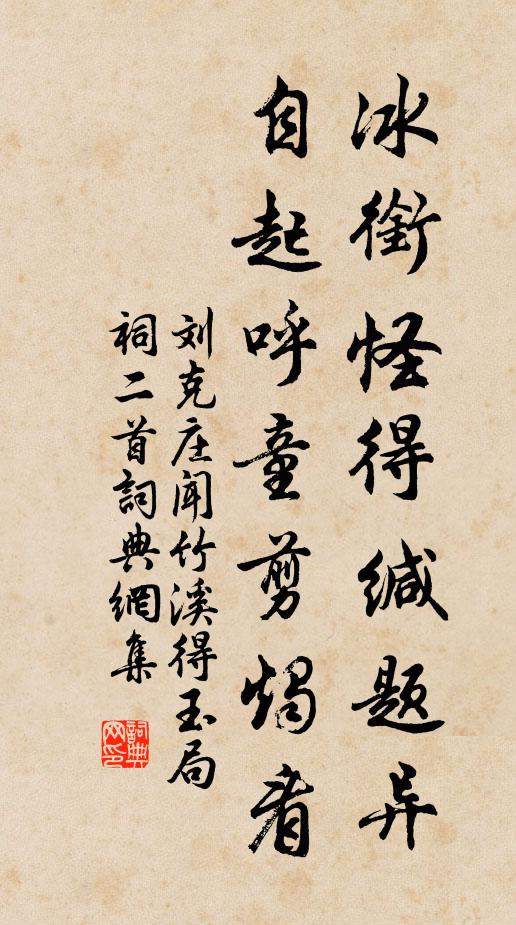 冰銜怪得缄题异
自起呼童剪燭看
刘克庄闻竹溪得玉局
祠二首詞典網集
詞典
网印